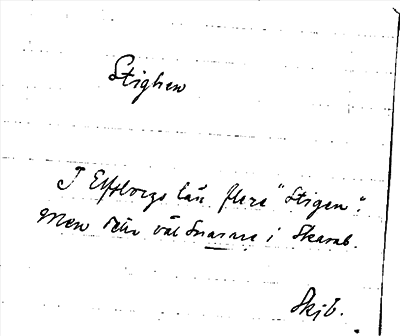 Stighen
I Elfsborgs län flera "Stigen".
Men detta väl snarare i Skarab.
Skjb.